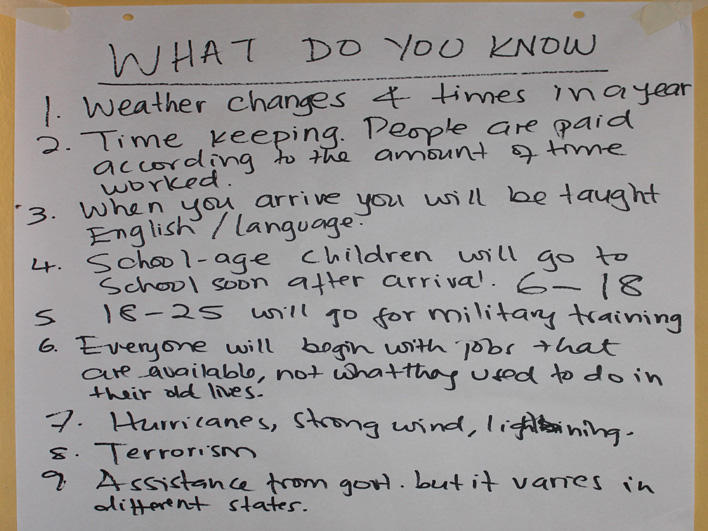 WHAT DO YOU KNOW
1. Weather changes & times in a year
2. Time keeping. People are paid
according to the amount of time
worked.
3. When you arrive you will be taught
English / language.
4. School-age children will go to
school soon after arrival. 6-18
5 18-25 will go for military training
6. Everyone will begin with jobs that
are available, not what they used to do in
their old lives.
7. Hurricanes, strong wind, lightning.
8. Terrorism
9. Assistance from govt. but it varies in
different states.